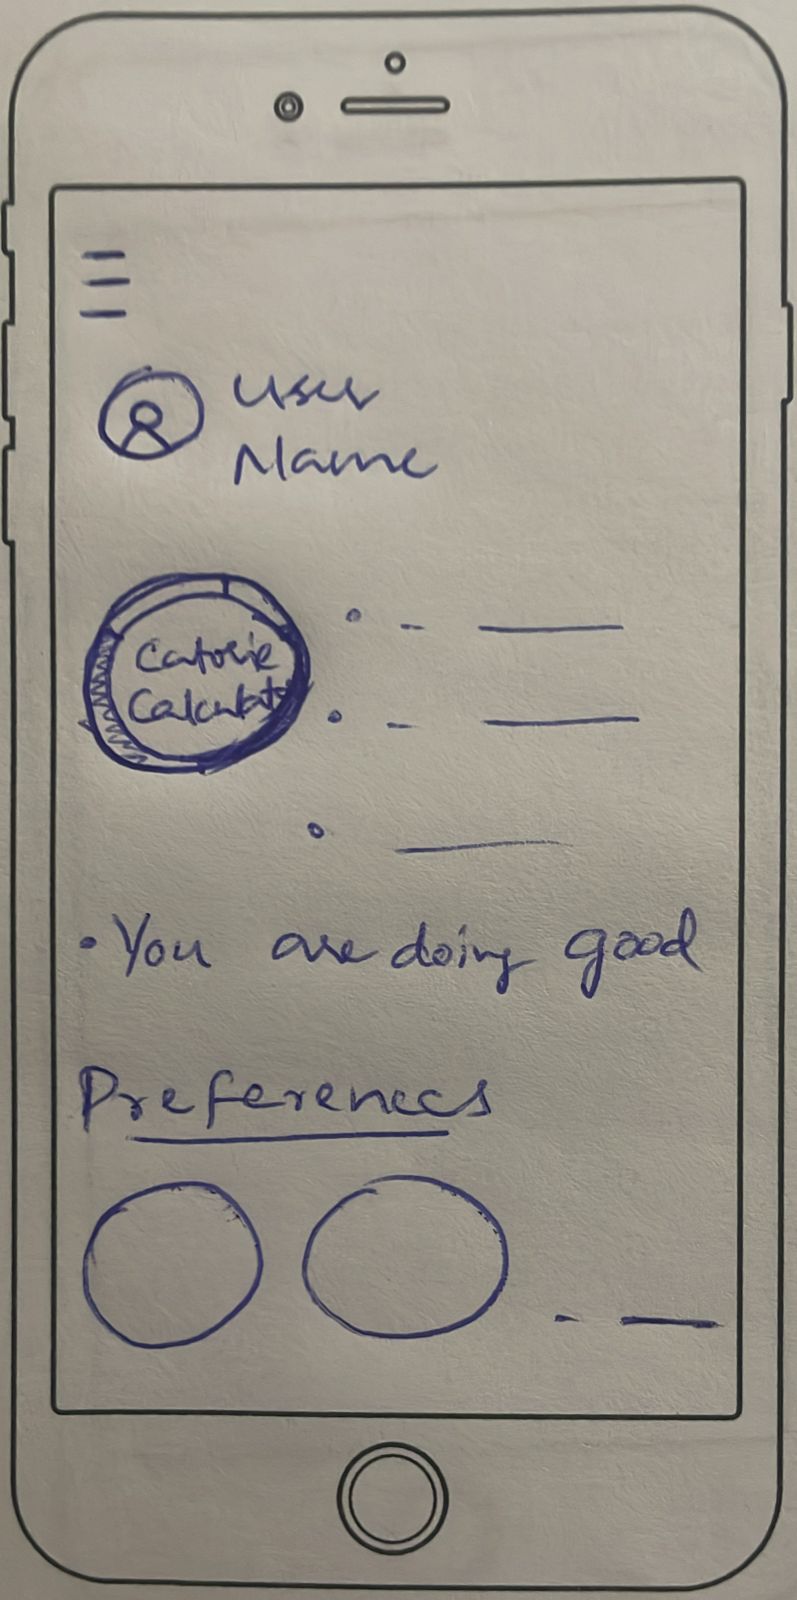 User
Name
Calorie
Calculator
• You are doing good
Preferences